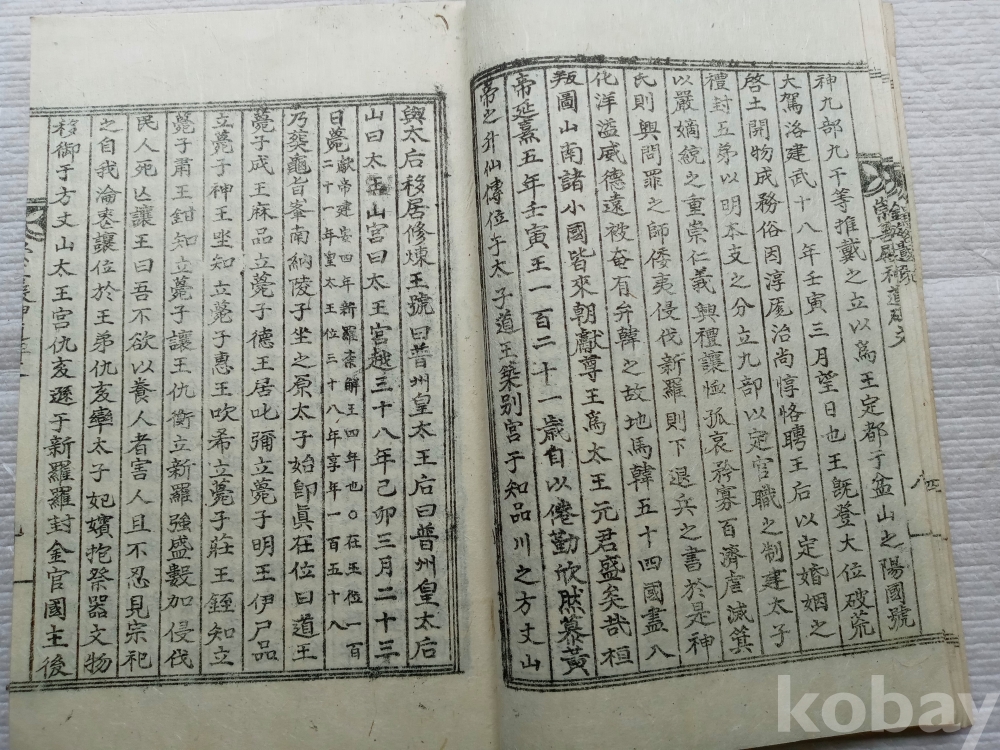 神九部九干等推戴之立以爲王定都于盆山之陽國號
大駕洛建武十八年壬寅三月望日也王旣登大位破荒
啓土開物成務俗因淳厖治尚惇恪聘王后以定婚姻之
禮封五弟以明本支之分立九部以定官職之制建太子
以嚴嫡統之重崇仁義興禮讓恤孤哀矜寡百濟虐滅箕
氏則興問罪之師倭夷侵伐新羅則下退兵之書於是神
化洋溢威德遠被奄有弁韓之故地馬韓五十四國盡入
版圖山南諸小國皆來朝獻尊王爲太王元君盛矣哉桓
帝延熹五年壬寅王一百二十一歲自以倦勤欣然慕黃
帝之升仙傳位于太子道王築別宮于知品川之方丈山
與太后移居修煉王號曰普州皇太王后曰普州皇太后
山曰太王山宮曰太王宮越三十八年己卯三月二十三
日薨獻帝建安四年新羅柰解王四年也○在王位一百
二十一年皇太王位三十八年享年一百五十八
乃葬龜旨峯南納陵子坐之原太子始卽眞在位曰道王
薨子成王麻品立薨子德王居叱彌立薨子明王伊尸品
立薨子神王坐知立薨子惠王吹希立薨子莊王銍知立
薨子肅王鉗知立薨子讓王仇衡立新羅強盛數加侵伐
民人死亡讓王曰吾不欲以養人者害人且不忍見宗祀
之自我淪喪讓位於王弟仇亥率太子妃嬪抱祭器文物
移御于方丈山太王宮仇亥遜于新羅羅封金官國主後
四
kobay